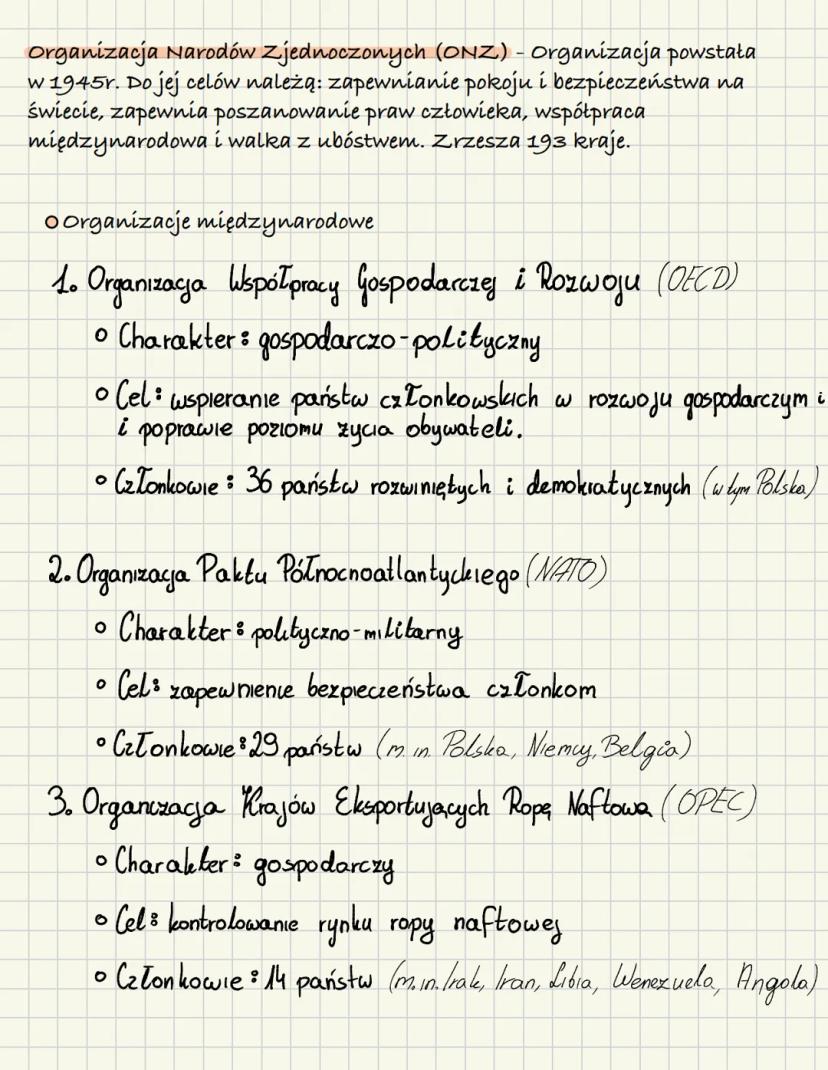 Organizacja Narodów Zjednoczonych (ONZ) - Organizacja powstała
w 1945r. Do jej celów należą: zapewnianie pokoju i bezpieczeństwa na
świecie, zapewnia poszanowanie praw człowieka, współpraca
międzynarodowa i walka z ubóstwem. Zrzesza 193 kraje.
Organizacje międzynarodowe
1. Organizacja Współpracy Gospodarczej i Rozwoju (OECD)
Charakter: gospodarczo-polityczny
Cel: wspieranie państw członkowskich w rozwoju gospodarczym i
i poprawie poziomu życia obywateli.
Członkowie: 36 państw rozwiniętych i demokratycznych (w tym Polska)
2. Organizacja Paktu Północnoatlantyckiego (NATO)
Charakter: polityczno-militarny
Cel: zapewnienie bezpieczeństwa członkom
Członkowie: 29 państw (m.in. Polska, Niemcy, Belgia)
3. Organizacja Krajów Eksportujących Ropę Naftową (OPEC)
Charakter: gospodarczy
Cel: kontrolowanie rynku ropy naftowej
Członkowie: 14 państw (m.in. Irak, Iran, Libia, Wenezuela, Angola)